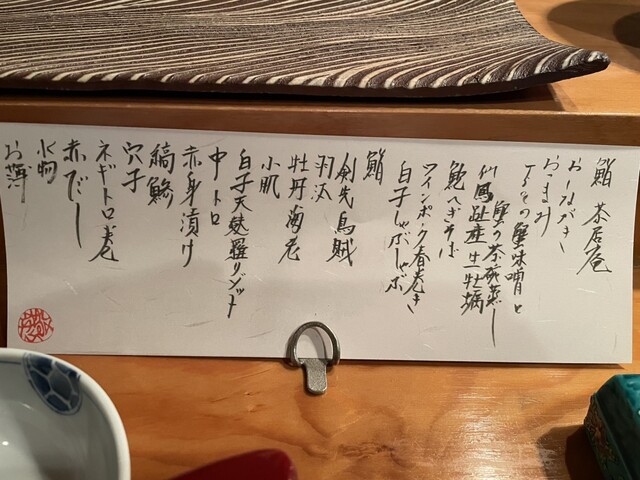 鮨 茶居庵
おしながき
おつまみ
下ろその蟹味噌と
蟹の茶碗蒸し
仙鳳趾産生牡蠣
鮑へぎそば
ツインポーク春巻き
白子しゃぶしゃぶ
鮨
剣先烏賊
羽汰
牡丹海老
小肌
白子天麩羅リゾット
中トロ
赤身漬け
縞鯵
穴子
ネギトロ巻
赤だし
水物
お薄